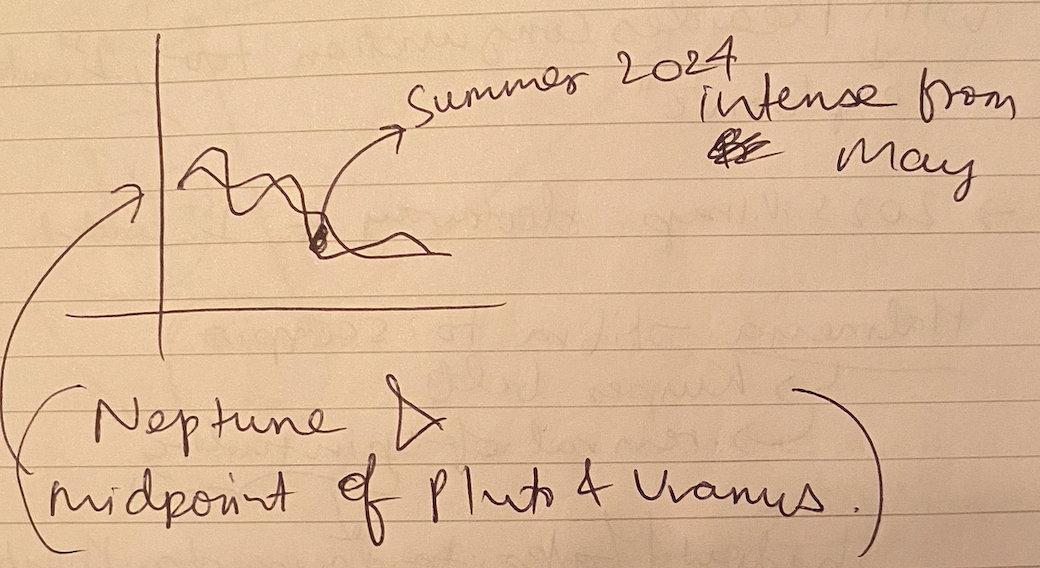 Summer 2024
intense from
May
Neptune
midpoint of Pluto & Uranus.